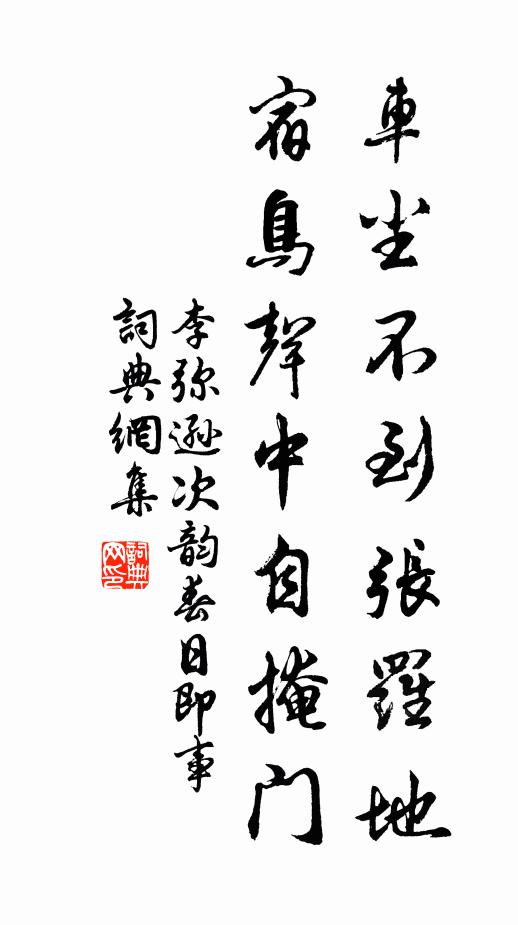 車尘不到張羅地
宿鳥聲中自掩門
李弥遜次韵春日即事
詞典網集
詞典网印